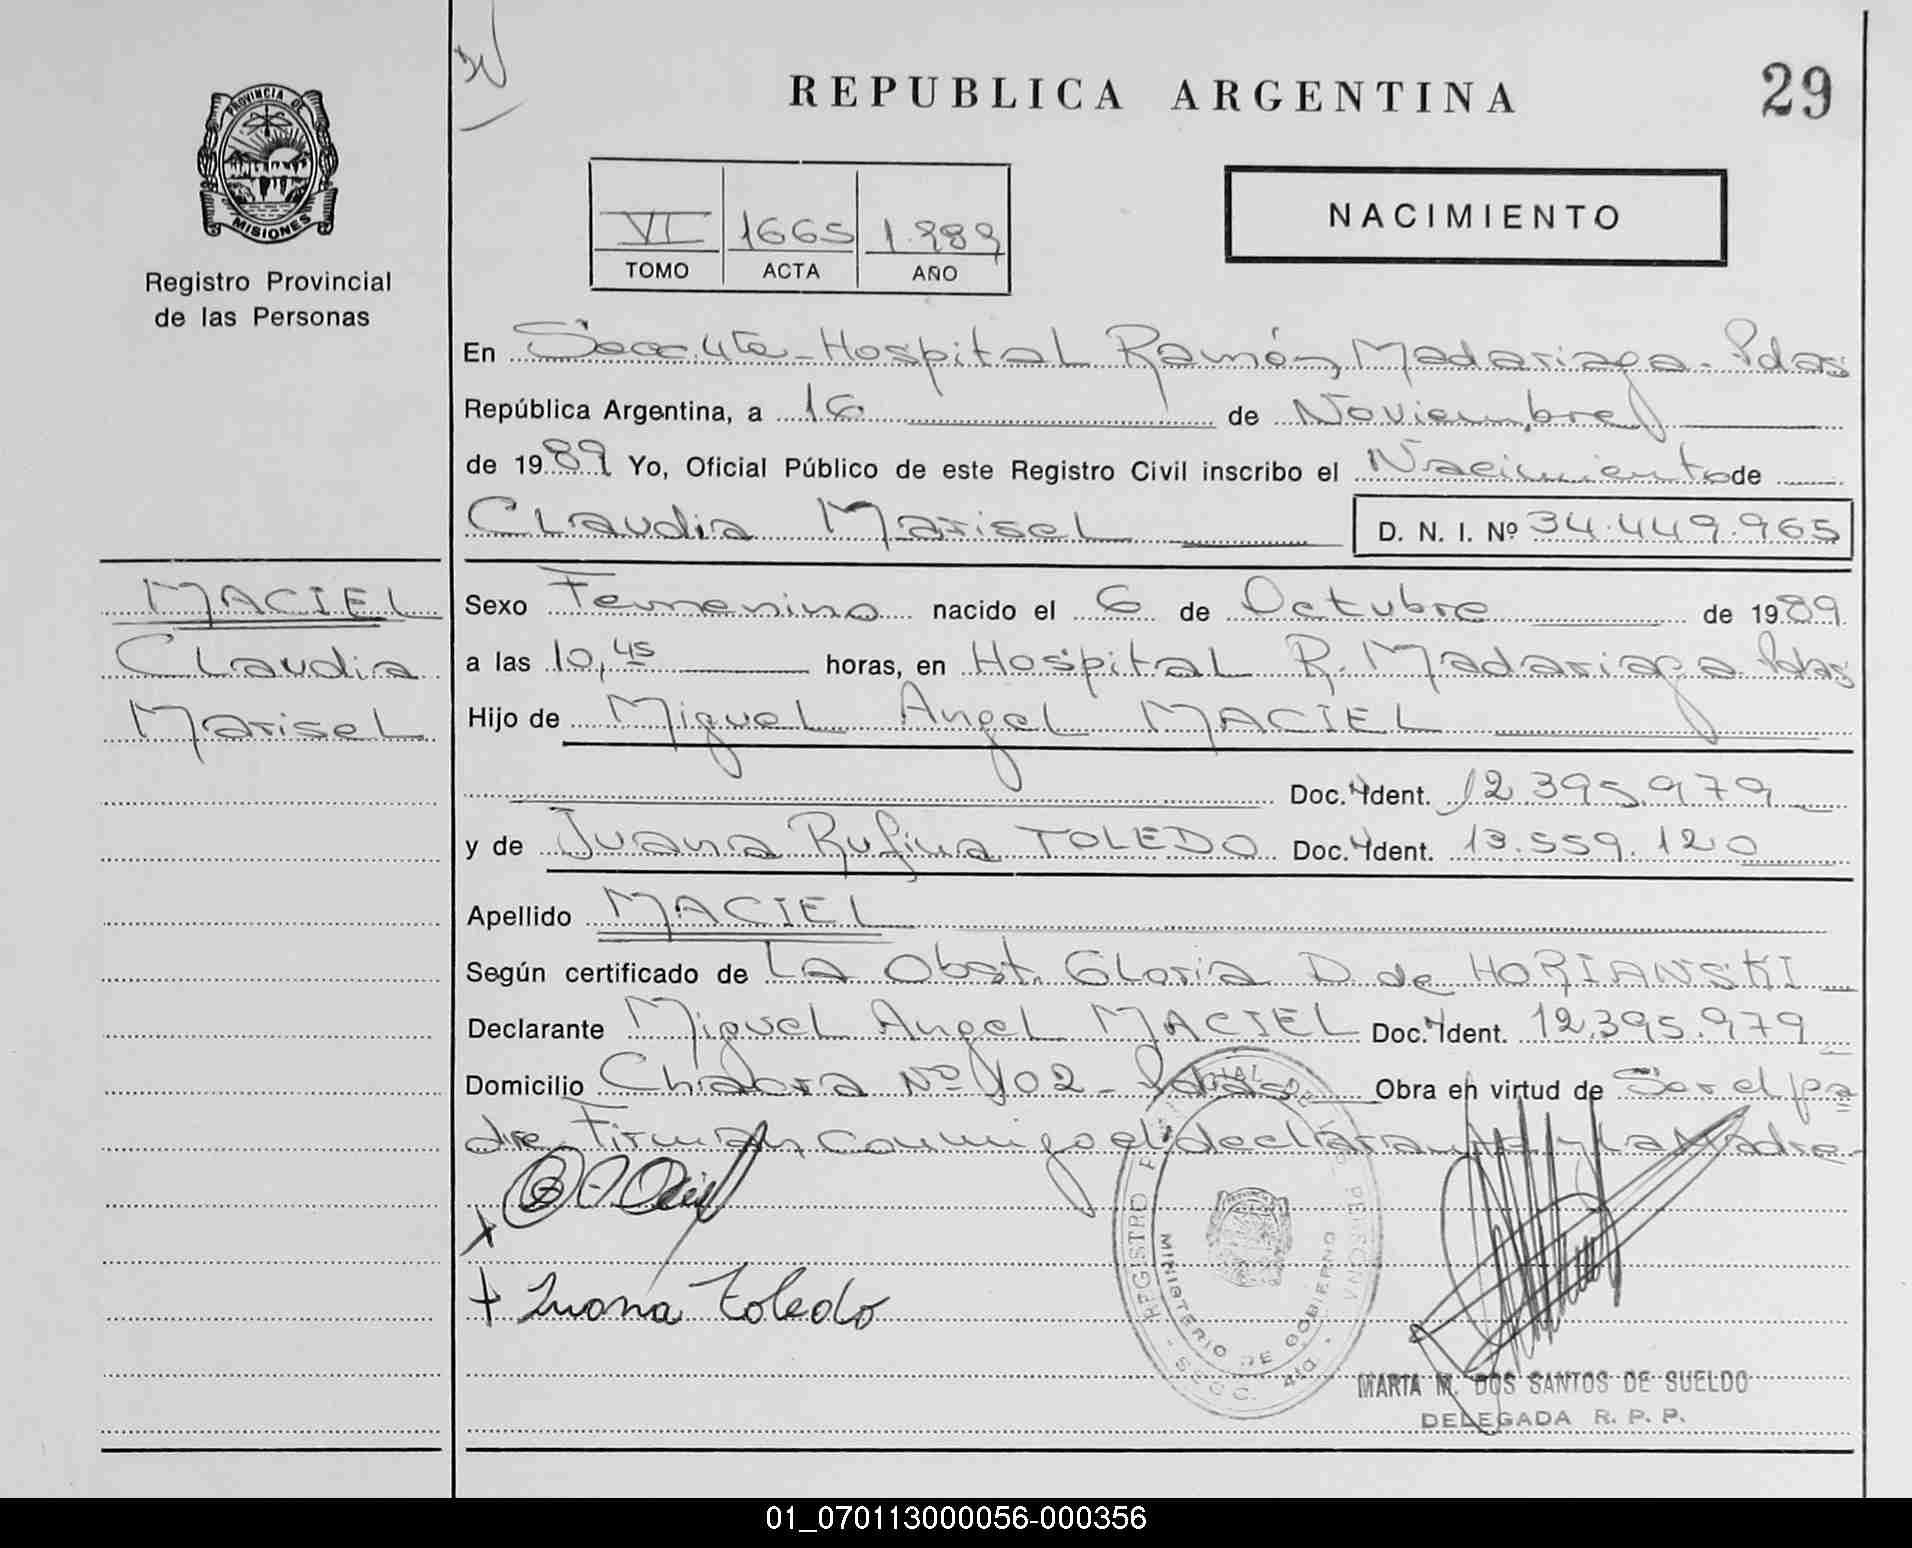 REPUBLICA ARGENTINA
29
PROVINCIA DE MISIONES
Registro Provincial
de las Personas
VI 1665 1.989
TOMO ACTA AÑO
NACIMIENTO
En Secc. 4ta - Hospital Ramón Madariaga - Pdas
República Argentina, a 16 de Noviembre
de 1989 Yo, Oficial Público de este Registro Civil inscribo el Nacimiento de
Claudia Marisel D. N. I. Nº 34.449.965
MACIEL
Claudia
Marisel
Sexo Femenino nacido el 6 de Octubre de 1989
a las 10,45 horas, en Hospital R. Madariaga Pdas
Hijo de Miguel Angel MACIEL
Doc. Ident. 12.395.979
y de Juana Rufina TOLEDO Doc. Ident. 13.559.120
Apellido MACIEL
Según certificado de La Obst. Gloria D. de HORIANSKI
Declarante Miguel Angel MACIEL Doc. Ident. 12.395.979
Domicilio Chacra Nº 102 - Pdas Obra en virtud de Ser el pa
dre Firman conmigo el declarante y La Madre-
Juana Toledo
REGISTRO PROVINCIAL DE LAS PERSONAS
MINISTERIO DE GOBIERNO
- SECC. 4ta -
MARTA M. DOS SANTOS DE SUELDO
DELEGADA R. P. P.
01_070113000056-000356